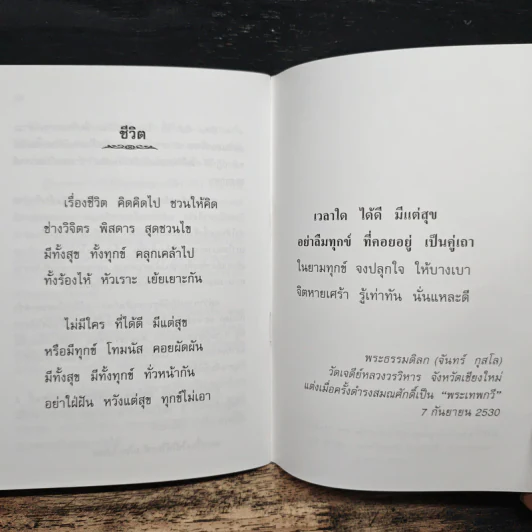 ชีวิต
เรื่องชีวิต คิดคิดไป ชวนให้คิด
ช่างวิจิตร พิสดาร สุดชวนไข
มีทั้งสุข ทั้งทุกข์ คลุกเคล้าไป
ทั้งร้องไห้ หัวเราะ เย้ยเยาะกัน
ไม่มีใคร ที่ได้ดี มีแต่สุข
หรือมีทุกข์ โทมนัส คอยผัดผัน
มีทั้งสุข มีทั้งทุกข์ ทั่วหน้ากัน
อย่าใฝ่ฝัน หวังแต่สุข ทุกข์ไม่เอา
เวลาใด ได้ดี มีแต่สุข
อย่าลืมทุกข์ ที่คอยอยู่ เป็นคู่เถา
ในยามทุกข์ จงปลุกใจ ให้บางเบา
จิตหายเศร้า รู้เท่าทัน นั่นแหละดี
พระธรรมดิลก (จันทร์ กุสโล)
วัดเจดีย์หลวงวรวิหาร จังหวัดเชียงใหม่
แต่งเมื่อครั้งดำรงสมณศักดิ์เป็น "พระเทพกวี"
7 กันยายน 2530